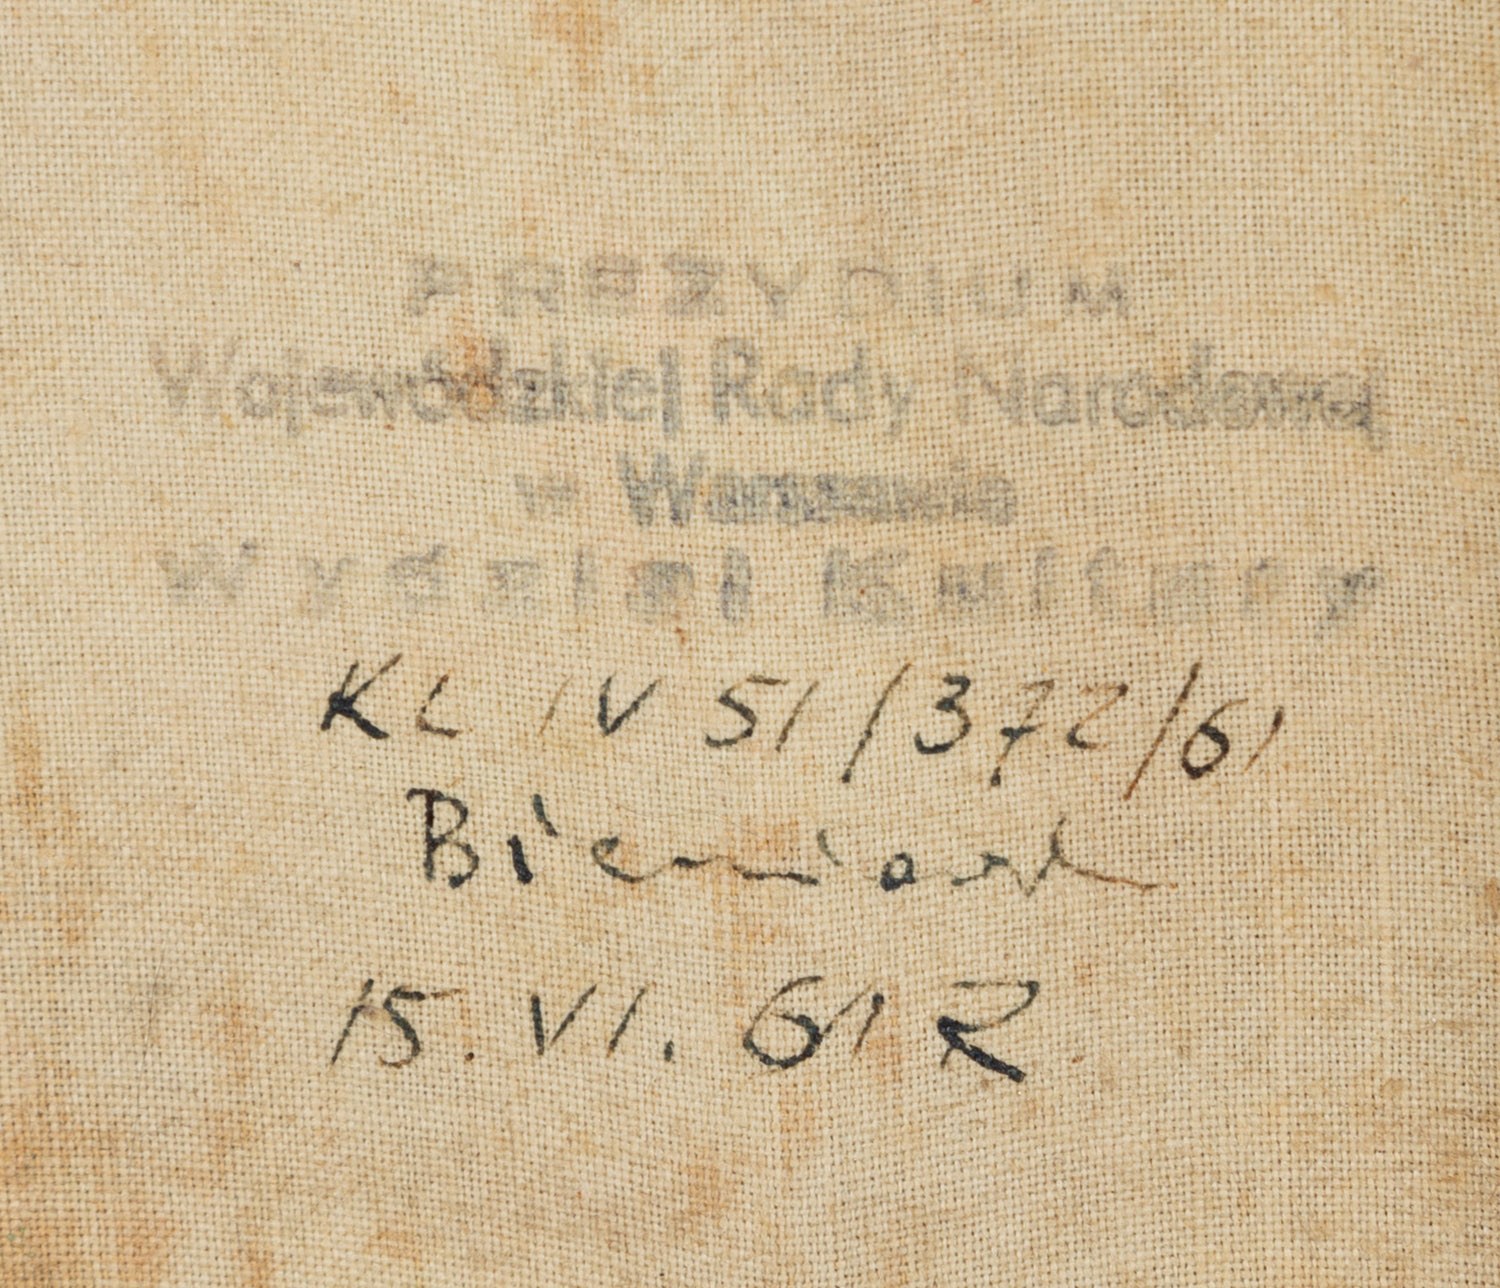 PREZYDIUM
Wojewódzkiej Rady Narodowej
w Warszawie
Wydział Kultury
KL IV 51/372/61
Bieniek
15. VI. 61 R